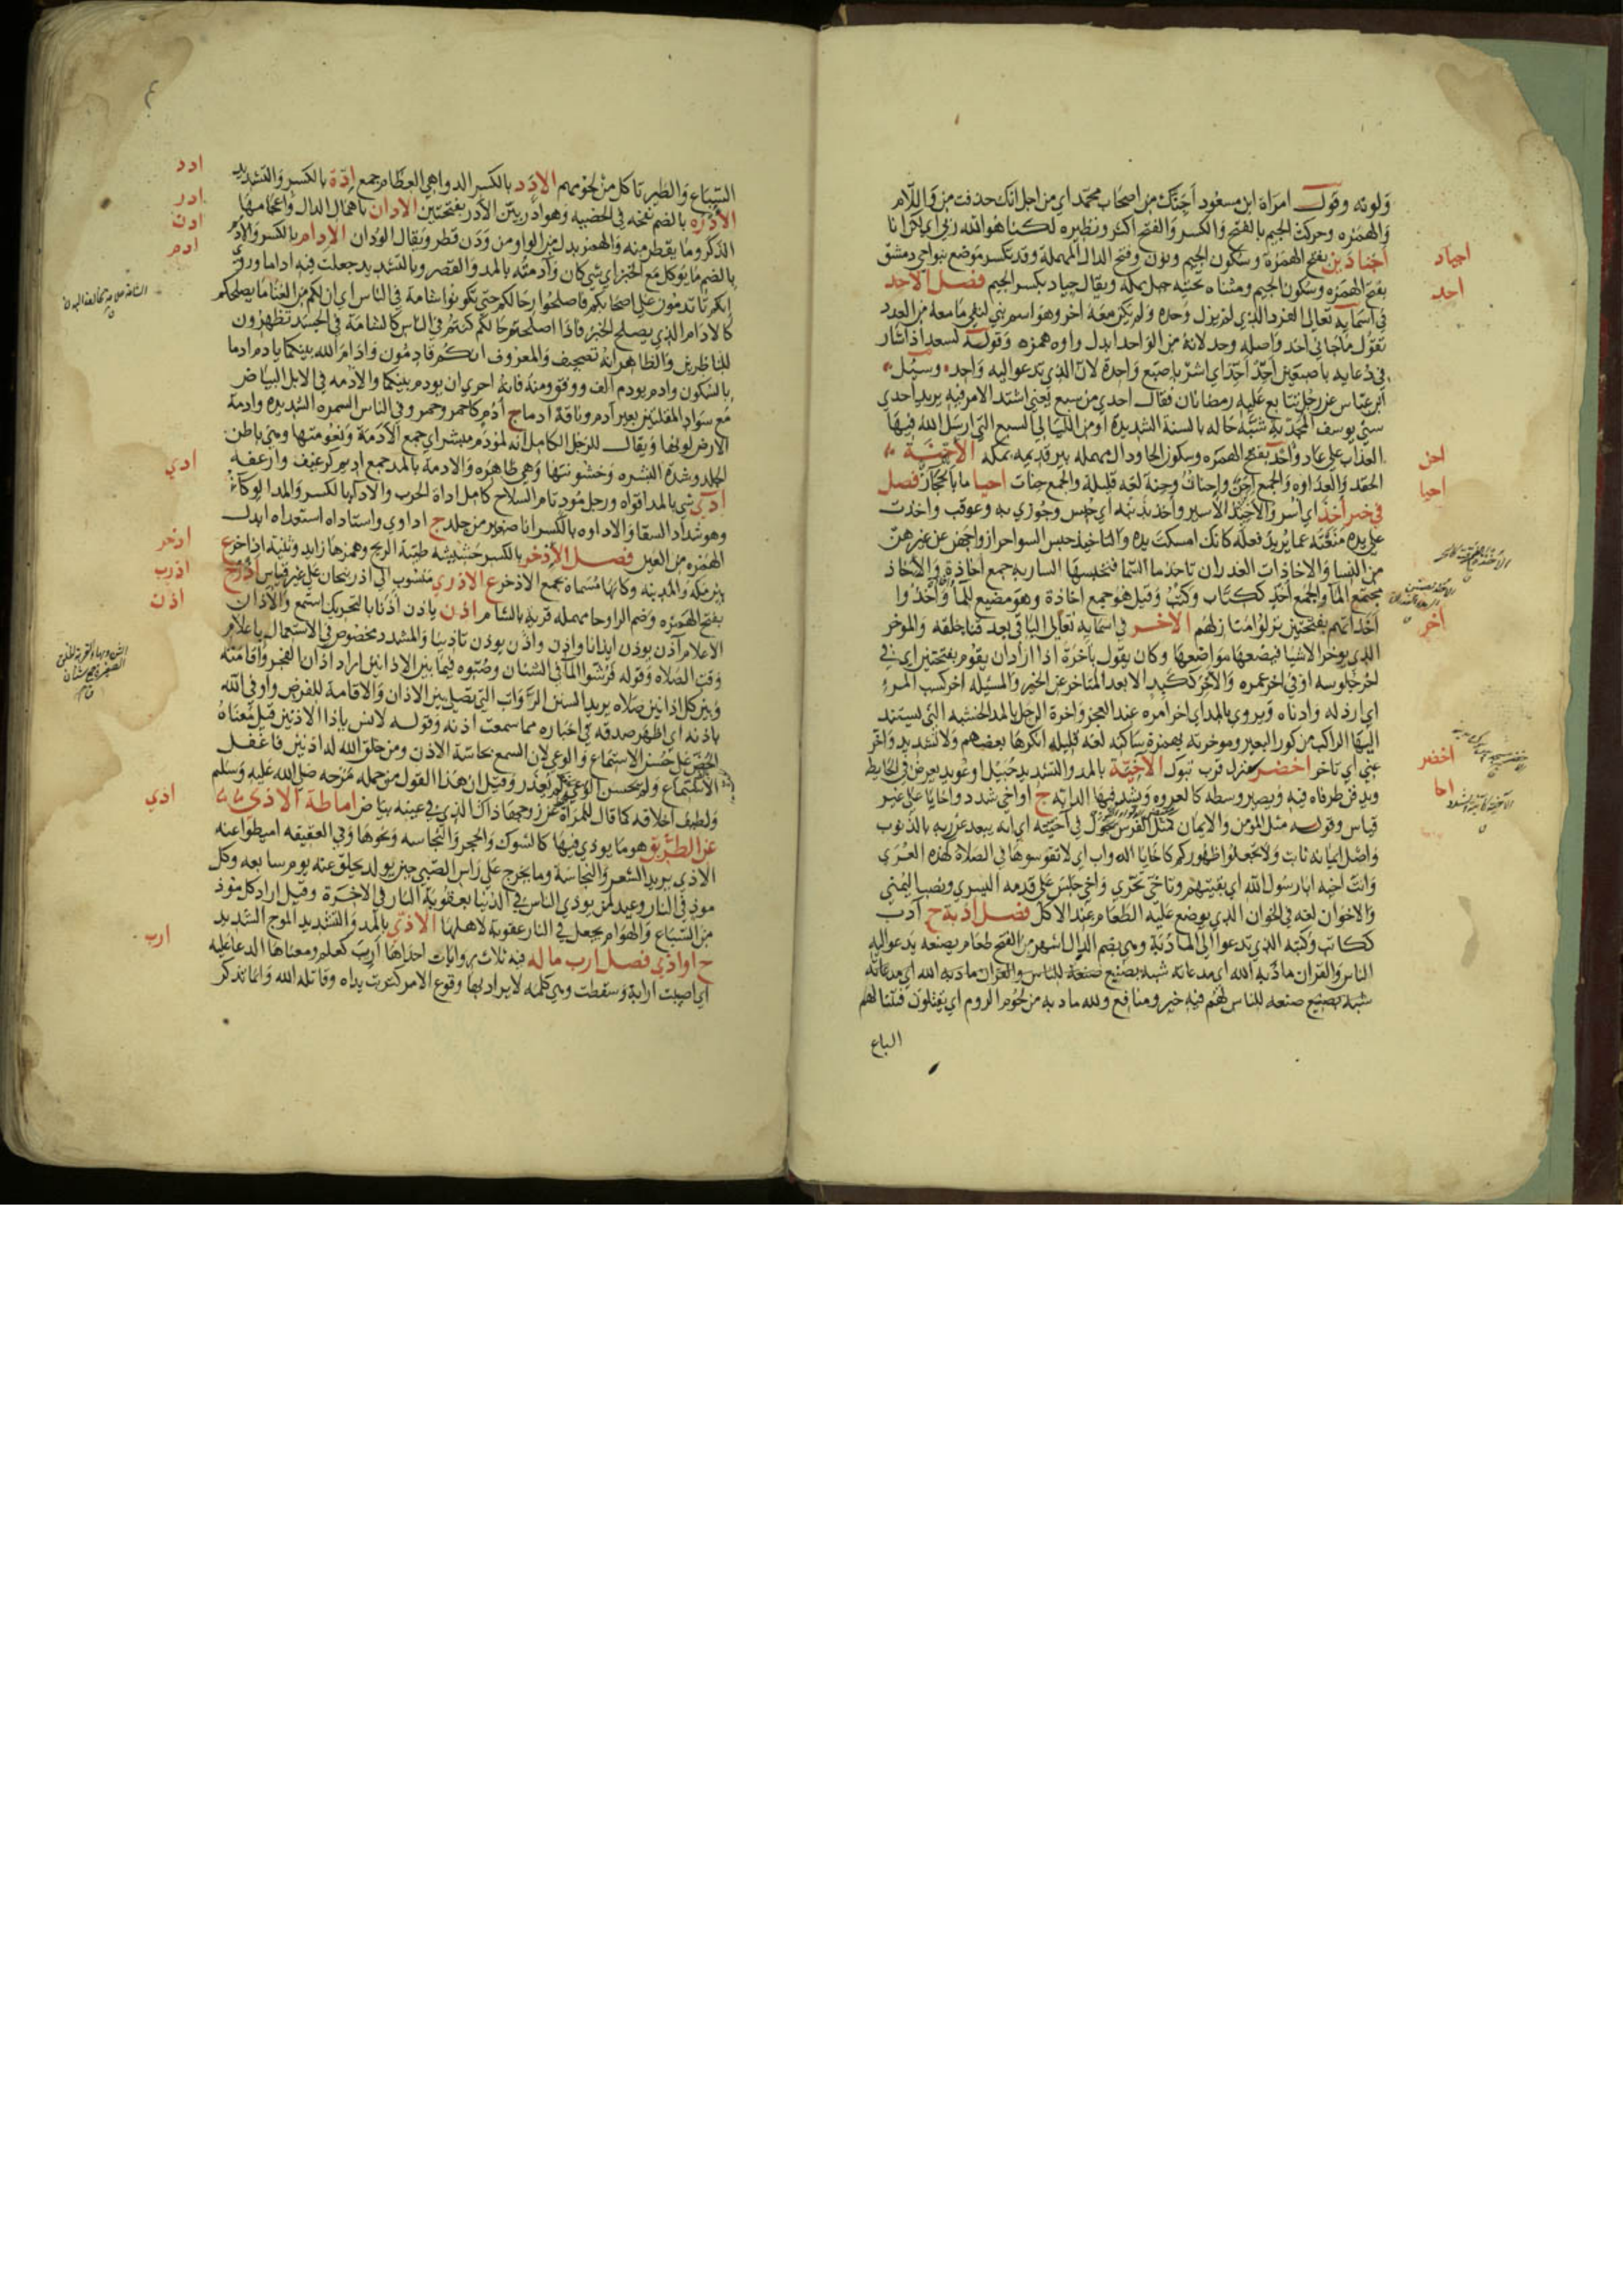 ولونه وقول امراة ابن مسعود اجنك من اصحاب محمد اي من اجل انك حذفت من واللام
والهمزه وحركت الجيم بالفتح والكسر والفتح اكثر ونظيره لكنا هو الله ربي اي لكن انا
اجنادين بفتح الهمزة وسكون الجيم ونون وفتح الدال المهملة وقد تكسر موضع بنواحي دمشق
اجياد
بفتح الهمزه وسكون الجيم ومثناه تحتيه جبل بمكه ويقال جياد بكسر الجيم فصل الاحد
احد
في اسمايه تعالى الفرد الذي لم يزل وحده ولم يكن معه اخر وهو اسم بني لنفي ما معه من العدد
تقول ما جاني احد واصله وحد لانه من الواحد ابدل واوه همزه وقوله لسعد اذ اشار
في دعايه باصبعين احد احد اي اشر باصبع واحدة لان الذي تدعو اليه واحد وسيل
ابن عباس عن رجل تتابع عليه رمضانان فقال احدى من سبع يعني اشتد الامر فيه يريد احدي
سني يوسف المجدبة شبه حاله بالسنة الشديدة او من الليالي السبع التي ارسل الله فيها
العذاب على عاد واحد بفتح الهمزه وسكون الحا ودال مهمله بير قديمه بمكه الاحنة
احن
الحقد والعداوه والجمع احن واحنات وحنة لغه قليلة والجمع حنات احيا ما بالحجاز فصل
احيا
في خبر اخذ اي اسر والاخيذ الاسير واخذ بذنبه اي حبس وجوزي به وعوقب واخذت
على يده منعته عما يريد فعله كانك امسكت يده والتاخيذ حبس السواحر ازواجهن عن غيرهن
من النسا والاخاذات الغدران تاخذ ما السما فتحبسها الساربه جمع اخاذة والاخاذ
مجتمع الما والجمع اخذ ككتاب وكتب وقيل هو جمع اخاذة وهو مصنع للما واخذوا
اخذاتهم بفتحتين نزلوا منازلهم الاخر في اسمايه تعالى الباقي بعد فنا خلقه والموخر
اخر
الذي يوخر الاشيا فيضعها مواضعها وكان يقول باخرة اذا اراد ان يقوم بفتحتين اي في
اخر جلوسه او في اخر عمره والاخر ككبد الابعد المتاخر عن الخير والمسيله اخر كسب المرء
اي ارذله وادناه ويروى بالمد اي اخر امره عند العجز واخرة الرحل بالمد الخشبه التي يستند
اليها الراكب من كور البعير وموخرته بهمزة ساكنه لغه قليله انكرها بعضهم ولا تشديد واخر
عني اي تاخر اخضر منزل قرب تبوك الاخية بالمد والتشديد حبيل او عويد يعرض في الحايط
اخضر
ويدفن طرفاه فيه ويصير وسطه كالعروه ويشد فيها الدابه ج اواخي مشدد واخايا على غير
اخا
قياس وقوله مثل المومن والايمان كمثل الفرس يجول في اخيته اي انه يبعد عن ربه بالذنوب
واصل ايمانه ثابت ولا تجعلوا ظهوركم كاخايا الدواب اي لا تقوسوها في الصلاة كهذه العري
وانت اخيه ابا رسول الله اي بقيتهم وتاخى تحرى واخى جلس على قدمه اليسري ونصب اليمني
والاخوان لغه في الخوان الذي يوضع عليه الطعام عند الاكل فصل ادبة ج ادب
ككاتب وكتبه الذي يدعوا الى المادبة وهي بضم الدال اشهر من الفتح طعام يصنعه يدعو اليه
الناس والقران مادبة الله اي مدعاته شبه بصنيع صنعه للناس والقران مادبه الله اي مدعاته
شبه بصنيع صنعه للناس لهم فيه خير ومنافع ولله مادبه من لحوم الروم اي يقتلون فتنتابهم
السباع
السباع والطير تاكل من لحومهم الادد بالكسر الدواهي العظام جمع ادة بالكسر والتشديد
ادد
الادره بالضم نفخه في الخصيه وهو ادر بين الادر بفتحتين الادان باهمال الدال واعجامها
ادر
الذكر وما يقطر منه والهمز بدل من الواو من ودن قطر ويقال الودان الادام بالكسر والادم
ادن
بالضم ما يوكل مع الخبز اي شي كان وادمته بالمد والقصر وبالتشديد جعلت فيه اداما وروي
ادم
انكم تاتدمون على اصحابكم فاصلحوا رحالكم حتى تكونوا شامة في الناس اي ان لكم من الغنا ما يصلحكم
كالادام الذي يصلح الخبز فاذا اصلحتم رحالكم كنتم في الناس كالشامة في الجسد تظهرون
للناظرين والظاهر انه تصحيف والمعروف انكم قادمون وادام الله بينكما يادم ادما
بالسكون وادم يودم الف ووفق ومنه فانه احري ان يودم بينكما والادمه في الابل البياض
مع سواد المقلتين بعير ادم وناقة ادما ج ادم كاحمر وحمر وفي الناس السمره الشديده وادمة
الارض لونها ويقال للرجل الكامل انه لمودم مبشر اي جمع الادمة ونعومتها وهي باطن
الجلد وشدة البشره وخشونتها وهي ظاهره والادمة بالمد جمع اديم كرغيف وارغفه
ادي شي بالمد اقواه ورجل مود تام السلاح كامل اداة الحرب والادا بالكسر والمد الوكاء
ادي
وهو شداد السقا والاداوه بالكسر انا صغير من جلد ج اداوي واستاداه استعداه ابدل
الهمزه من العين فصل الاذخر بالكسر حشيشه طيبة الريح وهمزها زايد وثنية اذاخر ع
اذخر
بين مكه والمدينه وكانها مسماة بجمع الاذخر ع الاذري منسوب الى اذربيجان على غير قياس اذرح
اذرب
بفتح الهمزه وضم الرا وحا مهمله قرية بالشام اذن ياذن اذنا بالتحريك استمع والاذان
اذن
الاعلام آذن يوذن ايذانا واذن واذن يوذن تاذينا والمشدد مخصوص في الاستعمال باعلام
وقت الصلاه وقوله فرشوا الما في الشنان وصبوه فيما بين الاذانين اراد اذان الفجر واقامته
وبين كل اذانين صلاه يريد السنن الرواتب التي تصلي بين الاذان والاقامة للفرض واوفى الله
باذنه اي اظهر صدقه في اخباره مما سمعت اذنه وقوله لانس ياذا الاذنين قيل معناه
الحض على حسن الاستماع والوعي لان السمع بحاسة الاذن ومن خلق الله له اذنين فاغفل
الاستماع ولم يحسن الوعي لم يعذر وقيل ان هذا القول من جمله مزحه صلى الله عليه وسلم
ولطيف اخلاقه كما قال للمراة عن زوجها ذاك الذي في عينه بياض اماطة الاذى
اذي
عن الطريق هو ما يوذي فيها كالشوك والحجر والنجاسه ونحوها وفي العقيقه اميطوا عنه
الاذي يريد الشعر والنجاسة وما يخرج على راس الصبي حين يولد يحلق عنه يوم سابعه وكل
موذ في النار وعيد لمن يوذي الناس في الدنيا بعقوبة النار في الاخرة وقيل اراد كل موذ
من السباع والهوام يجعل في النار عقوبة لاهلها الاذي بالمد والتشديد الموج الشديد
ج اواذي فصل ارب ما له فيه ثلاث روايات احداها ارب كعلم ومعناها الدعا عليه
ارب
اي اصيبت ارابه وسقطت وهي كلمه لا يراد بها وقوع الامر كتربت يداه وقاتله الله وانما تذكر